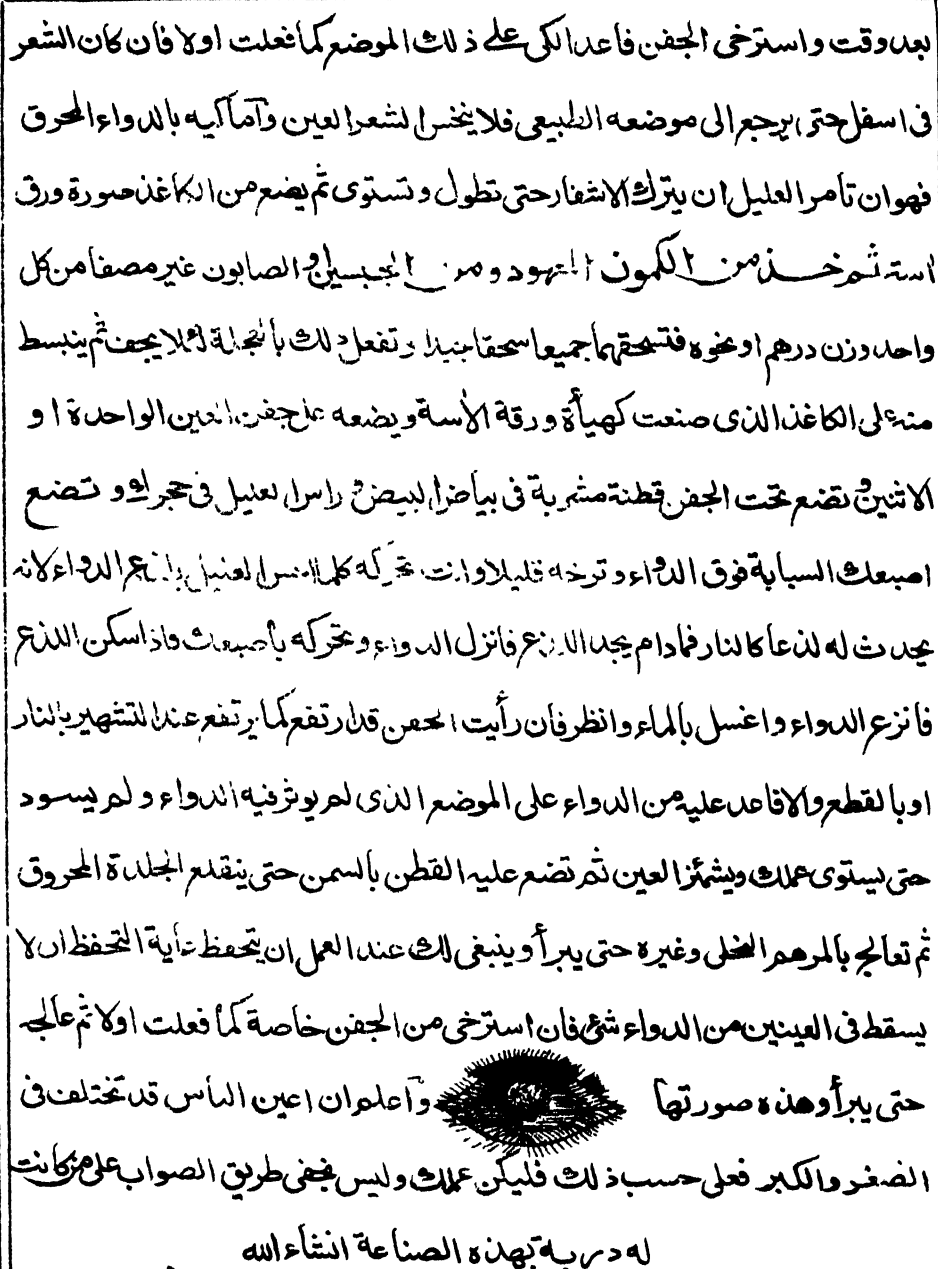 بعد وقت واسترخى الجفن فاعد الكى على ذلك الموضع كما فعلت اولا فان كان الشعر
فى اسفل حتى يرجع الى موضعه الطبيعى فلا ينخس الشعر العين وآما كيه بالدواء المحرق
فهوان تأمر العليل ان يترك الاشفار حتى تطول وتستوى ثم يضع من الكاغذ صورة ورق
اسة ثم خذ من الكمون ومن و الصابون غير مصفا من كل
واحد وزن درهم او نحوه فتسحقهما جميعا سحقا جيدا وتفعل ذلك بالعجلة لئلا يجف ثم ينبسط
منه على الكاغذ الذى صنعت كهيأة ورقة الأسة ويضعه على جفن العين الواحدة او
الاثنين وتضع تحت الجفن قطنة مشربة فى بياض البيض و راس العليل فى حجرك وتضع
اصبعك السبابة فوق الدواء وترخه قليلا وانت تحركه كلما العليل الدواء لانه
يحدث له لذعا كالنار فمادام يجد اللذع فانزل الدواء وتحركه بأصبعك فاذا سكن اللذع
فانزع الدواء واغسل بالماء وانظر فان رأيت الجفن قد ارتفع كما يرتفع عند التشهير بالنار
او بالقطع والا قاعد عليه من الدواء على الموضع الذى لم يوثر فيه الدواء ولم يسود
حتى يستوى عملك ويشمئز العين ثم تضع عليه القطن بالسمن حتى ينقلع الجلدة المحروق
ثم تعالج بالمرهم النخلى وغيره حتى يبرأ وينبغى لك عند العمل ان يتحفظ غاية التحفظ ان لا
يسقط فى العينين من الدواء شئ فان استرخى من الجفن خاصة كما فعلت اولا ثم عالجه
حتى يبرأ وهذه صورتها وآعلم ان اعين الناس قد تختلف فى
الصغر والكبر فعلى حسب ذلك فليكن عملك وليس يخفى طريق الصواب على من كانت
له دربة بهذه الصناعة انشاء الله